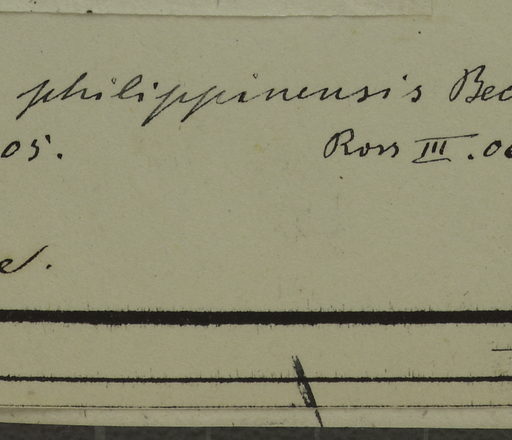 philippinensis Bec
05. Ross III.06
e.